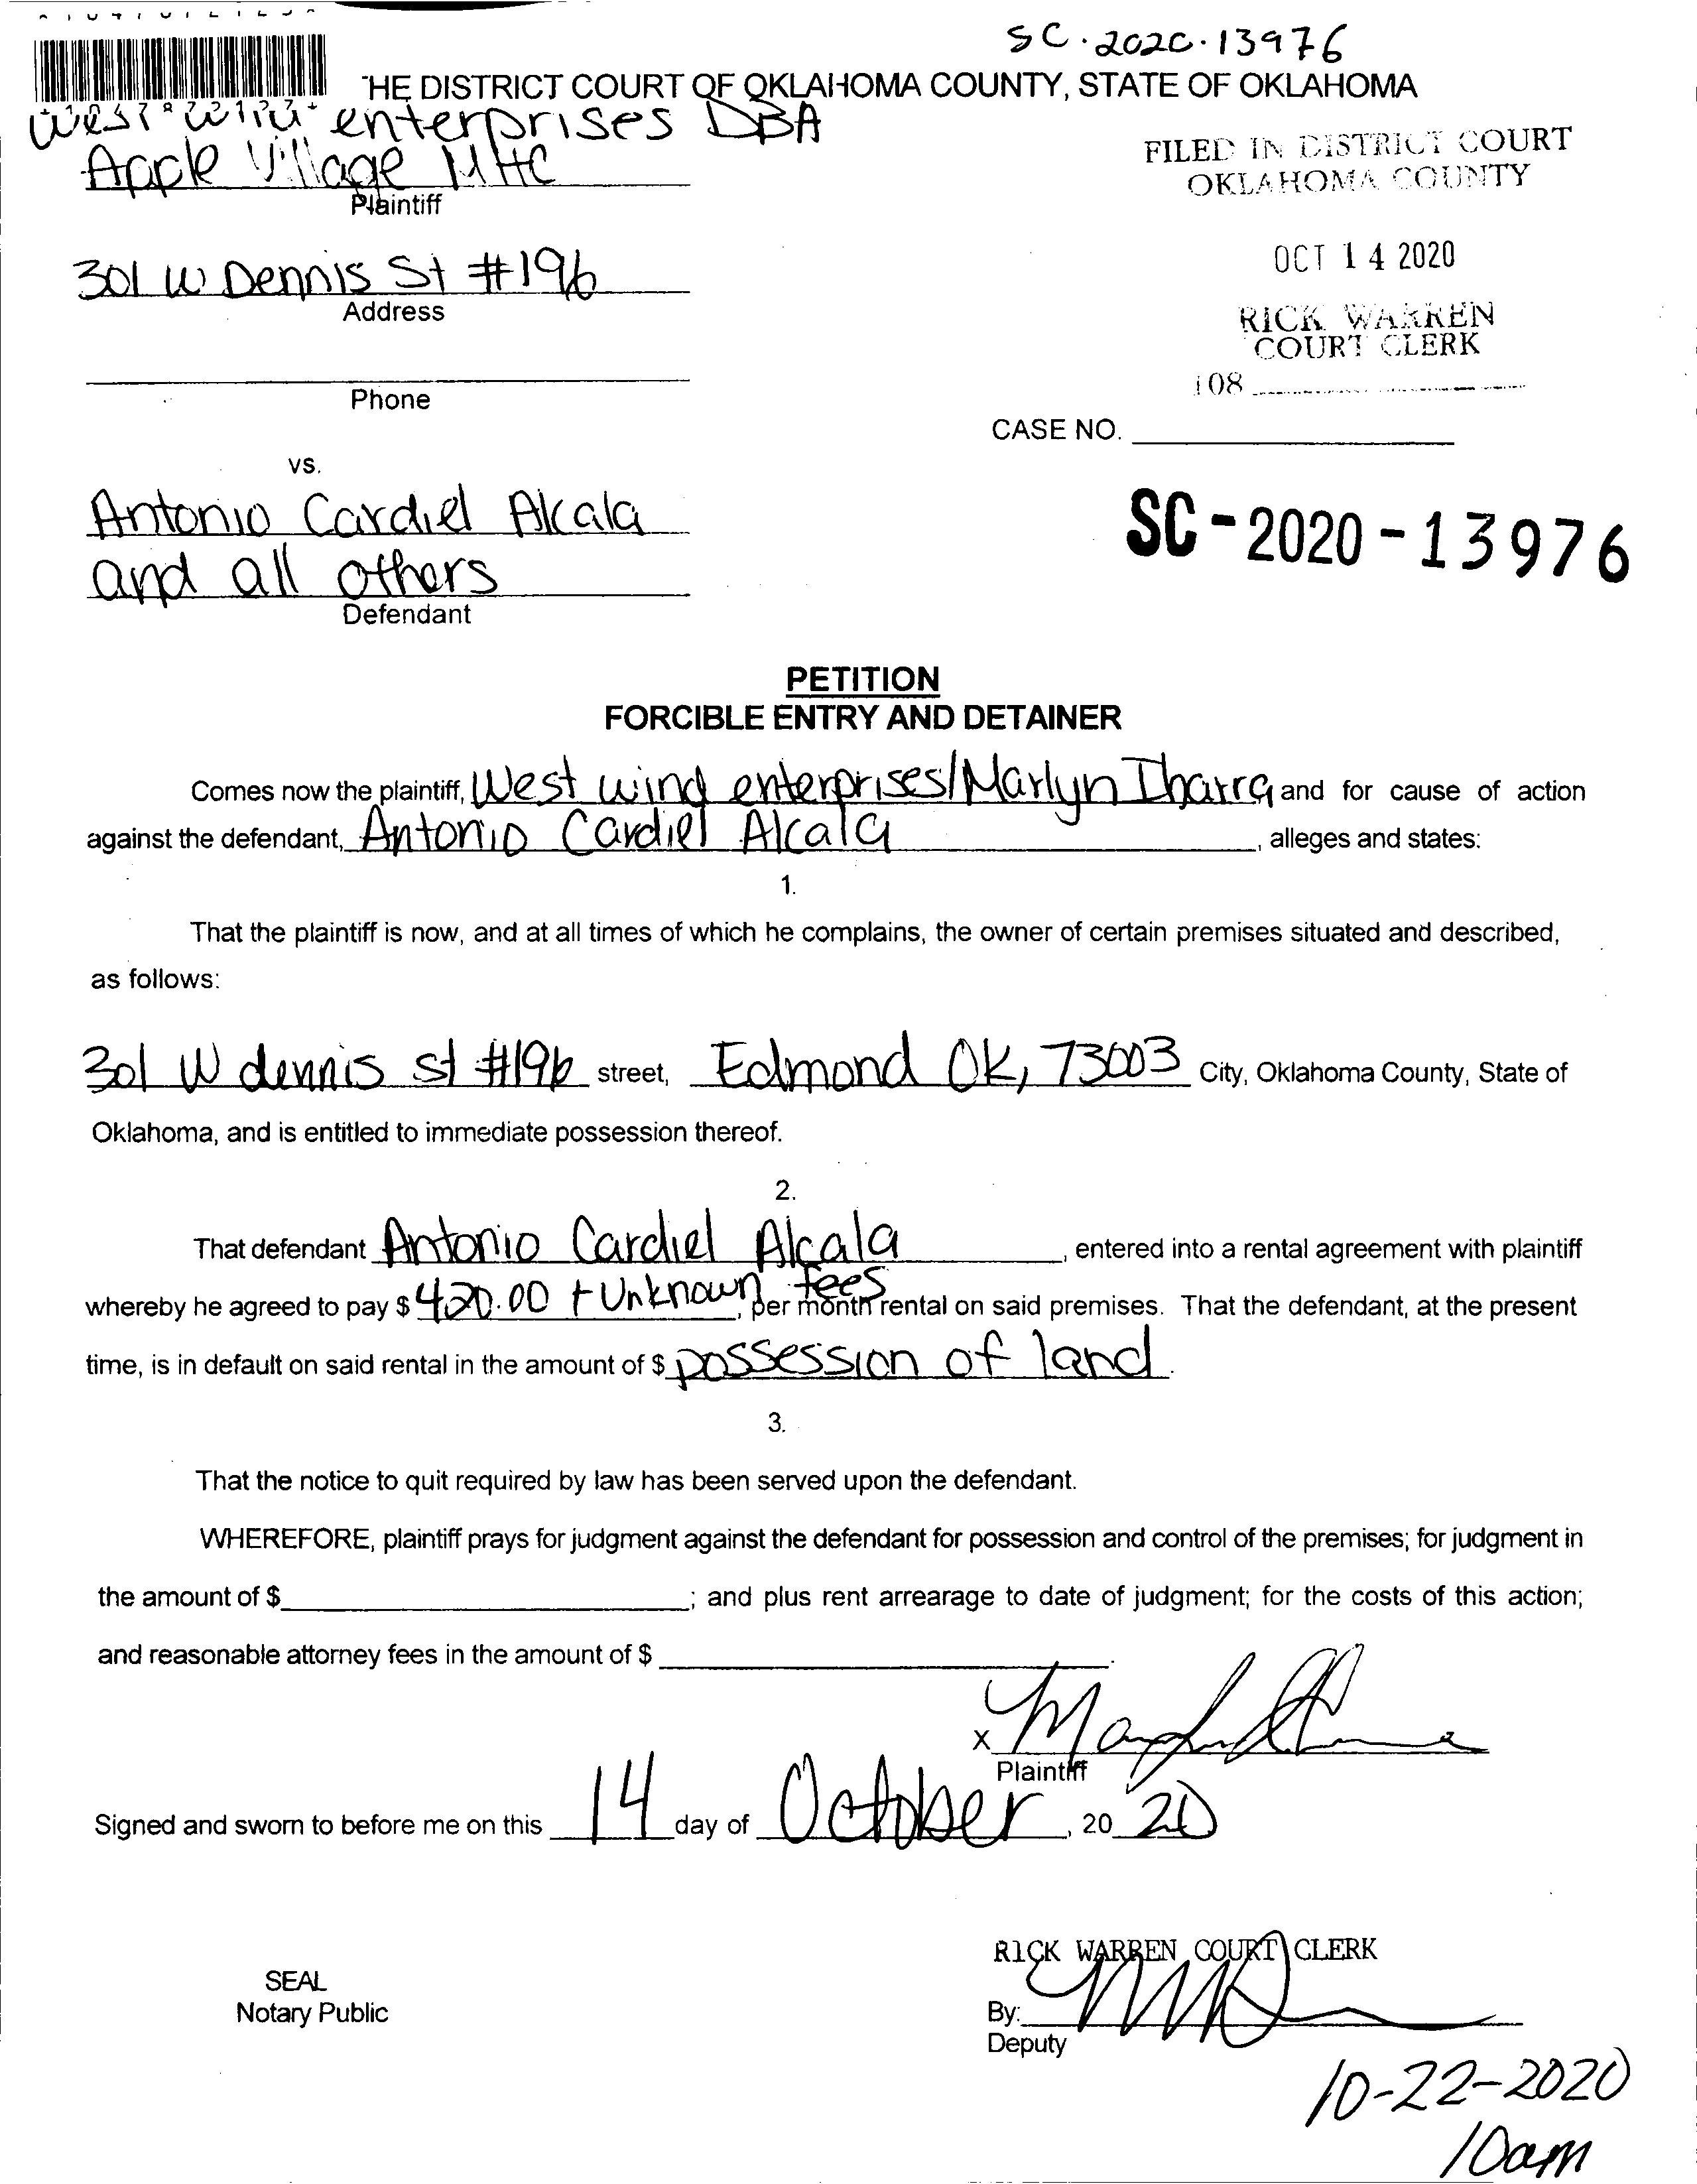 SC-2020-13976
HE DISTRICT COURT OF OKLAHOMA COUNTY, STATE OF OKLAHOMA
West Wind enterprises DBA
Apple Village MHC
Plaintiff
FILED IN DISTRICT COURT
OKLAHOMA COUNTY
301 W Dennis St #196
Address
OCT 14 2020
RICK WARREN
COURT CLERK
108
Phone
CASE NO.
vs.
Antonio Cardiel Alcala
and all others
Defendant
SC-2020-13976
PETITION
FORCIBLE ENTRY AND DETAINER
Comes now the plaintiff, West wind enterprises/Marlyn Ibarra and for cause of action
against the defendant, Antonio Cardiel Alcala, alleges and states:
1.
That the plaintiff is now, and at all times of which he complains, the owner of certain premises situated and described,
as follows:
301 W dennis st #196 street, Edmond OK, 73003 City, Oklahoma County, State of
Oklahoma, and is entitled to immediate possession thereof.
2.
That defendant Antonio Cardiel Alcala, entered into a rental agreement with plaintiff
whereby he agreed to pay $ 420.00 + Unknown fees, per month rental on said premises. That the defendant, at the present
time, is in default on said rental in the amount of $ possession of land.
3.
That the notice to quit required by law has been served upon the defendant.
WHEREFORE, plaintiff prays for judgment against the defendant for possession and control of the premises; for judgment in
the amount of $ ; and plus rent arrearage to date of judgment; for the costs of this action;
and reasonable attorney fees in the amount of $ .
X
Plaintiff
Signed and sworn to before me on this 14 day of October, 20 20
RICK WARREN COURT CLERK
SEAL
Notary Public
By:
Deputy
10-22-2020
10am